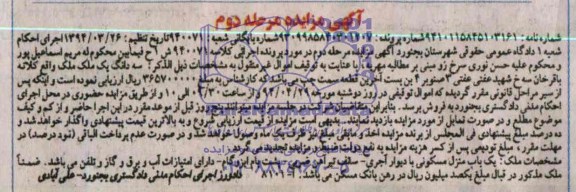 آگهی مزایده مرحله دوم
شماره نامه: ۹۴۱۰۱۱۵۸۴۵۱۰۳۱۶۱ شماره پرونده: ۹۳۰۹۹۸۵۸۴۰۳۰۱۱۰۷ شماره بایگانی شعبه ۹۴۰۰۷۱ تاریخ تنظیم: ۱۳۹۴/۰۳/۲۶ اجرای احکام
شعبه ۱ دادگاه عمومی حقوقی شهرستان بجنورد آگهی مزایده مرحله دوم در مورد پرونده اجرایی کلاسه ۹۴۰۰۷۱ ش ۱ ح فیمابین محکوم له مریم اسماعیل پور
و محکوم علیه حسن نوری سرخ زو مبنی بر مطالبه مهریه با عنایت به توقیف اموال غیر منقول به مشخصات ذیل الذکر: سه دانگ یک ملک واقع کلاته
باقرخان سه خ شهید عفتی عفتی ۲ صنوبر ۴ بن بست آخر قطعه سمت چپ می باشد که کارشناس به مبلغ ۳۶۵۷۰۰۰۰۰ ریال ارزیابی نموده است و اینکه پس
از سیر مراحل قانونی مقرر گردید که اموال توقیفی در روز دوشنبه مورخه ۹۴/۰۴/۲۹ از ساعت ۹/۳۰ الی ۱۰ و از طریق مزایده حضوری در محل اجرای
احکام مدنی دادگستری بجنورد به فروش برسد. بنابراین متقاضیان شرکت در جلسه مزایده می توانند پنج روز قبل از موعد مقرر در این اجرا حاضر و از کم و کیف
موضوع مطلع و در صورت تمایل از مورد مزایده بازدید نمایند. بدیهی است مزایده از قیمت ارزیابی شروع و به بالاترین قیمت پیشنهادی واگذار خواهد شد و
ده درصد مبلغ پیشنهادی فی المجلس از برنده مزایده اخذ و مابقی ظرف یک ماه وصول خواهد شد و در صورت عدم پرداخت الباقی (نود درصد) در
مهلت مقرر، مبلغ تودیعی پس از کسر هزینه مزایده به نفع دولت ضبط و مزایده تجدید می گردد.
مشخصات ملک: یک باب منزل مسکونی با دیوار آجری - سقف تیرآهن ضربی - پشت بام ایزوگام - دارای امتیازات آب و برق و گاز و تلفن می باشد. ضمناً
ملک مذکور در قبال مبلغ یکصد میلیون ریال در رهن بانک مسکن می باشد.
دادورز اجرای احکام مدنی دادگستری بجنورد - علی آبادی